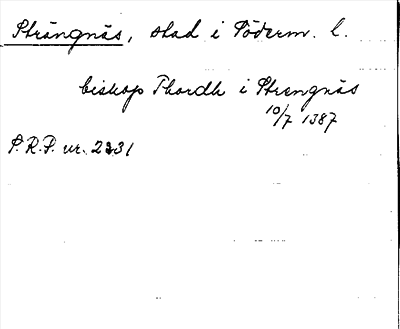 Strängnäs, stad i Söderm. l.
biskop Thordh i Strengnäs
10/7 1387
S.R.P. nr. 2231